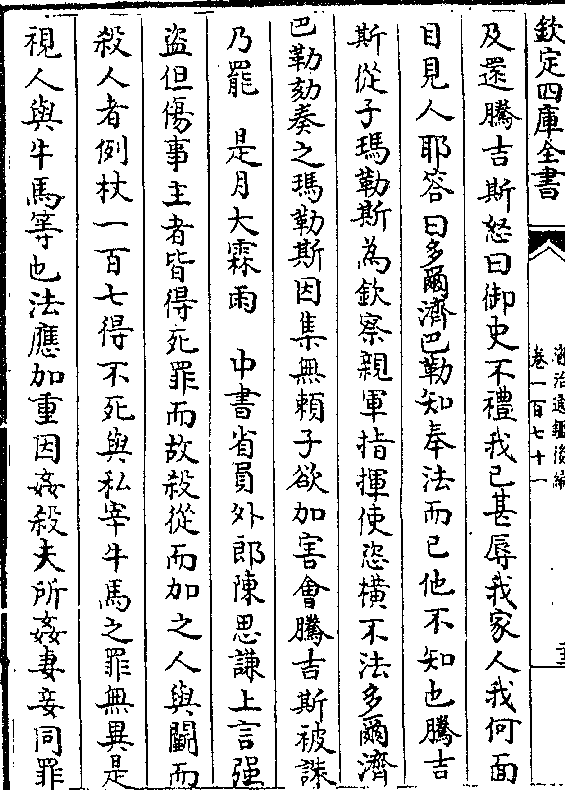 欽定四庫全書
資治通鑑後編
卷一百七十一
及還騰吉斯怒曰御史不禮我已甚辱我家人我何面
目見人耶答曰多爾濟巴勒知奉法而已他不知也騰吉
斯從子瑪勒斯為欽察親軍指揮使恣橫不法多爾濟
巴勒劾奏之瑪勒斯因集無賴子欲加害會騰吉斯被誅
乃罷　是月大霖雨　中書省員外郎陳思謙上言强
盜但傷事主者皆得死罪而故殺從而加之人與鬬而
殺人者例杖一百七得不死與私宰牛馬之罪無異是
視人與牛馬等也法應加重因姦殺夫所姦妻妾同罪